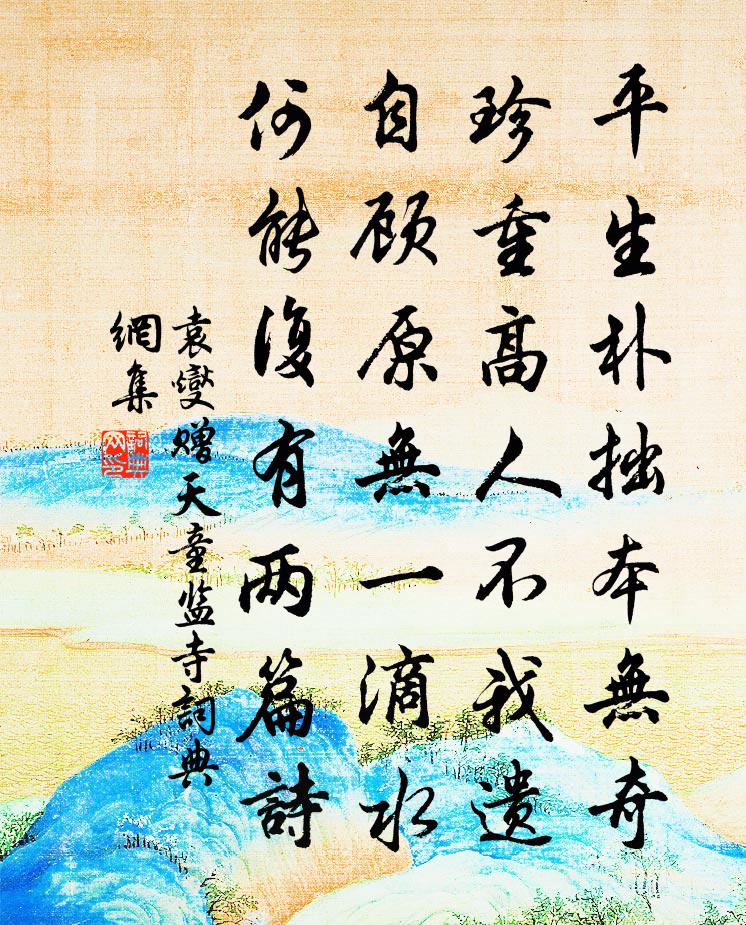 平生朴拙本無奇
珍重高人不我遗
自顾原無一滴水
何能復有两篇詩
袁燮赠天童监寺詞典
網集